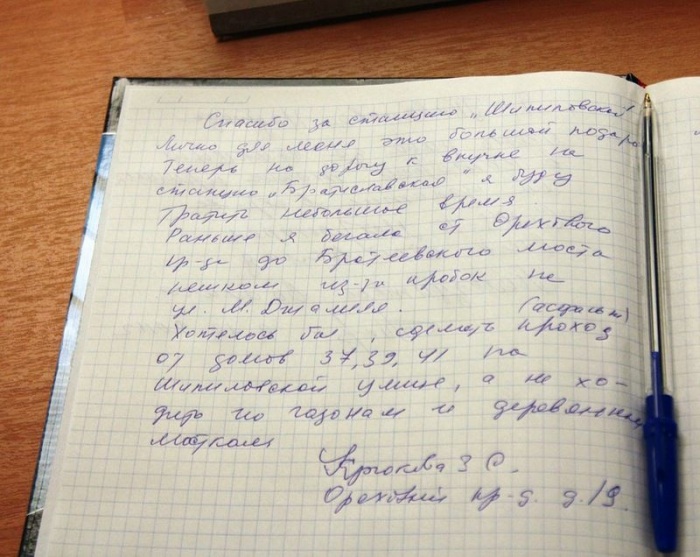 Спасибо за станцию „Шипиловская"
Лично для меня это большой подаро
Теперь на дорогу к внучке на
станцию „Братиславская" я буду
тратить небольшое время.
Раньше я бегала от Орехового
пр-да до Братеевского моста
пешком из-за пробок на
ул. М. Джалиля.
(асфальт)
Хотелось бы, сделать проход
от домов 37, 39, 41 по
Шипиловской улице, а не хо-
дить по газонам и деревянным
мосткам
Крюкова З С.
Ореховый пр-д. д. 19.